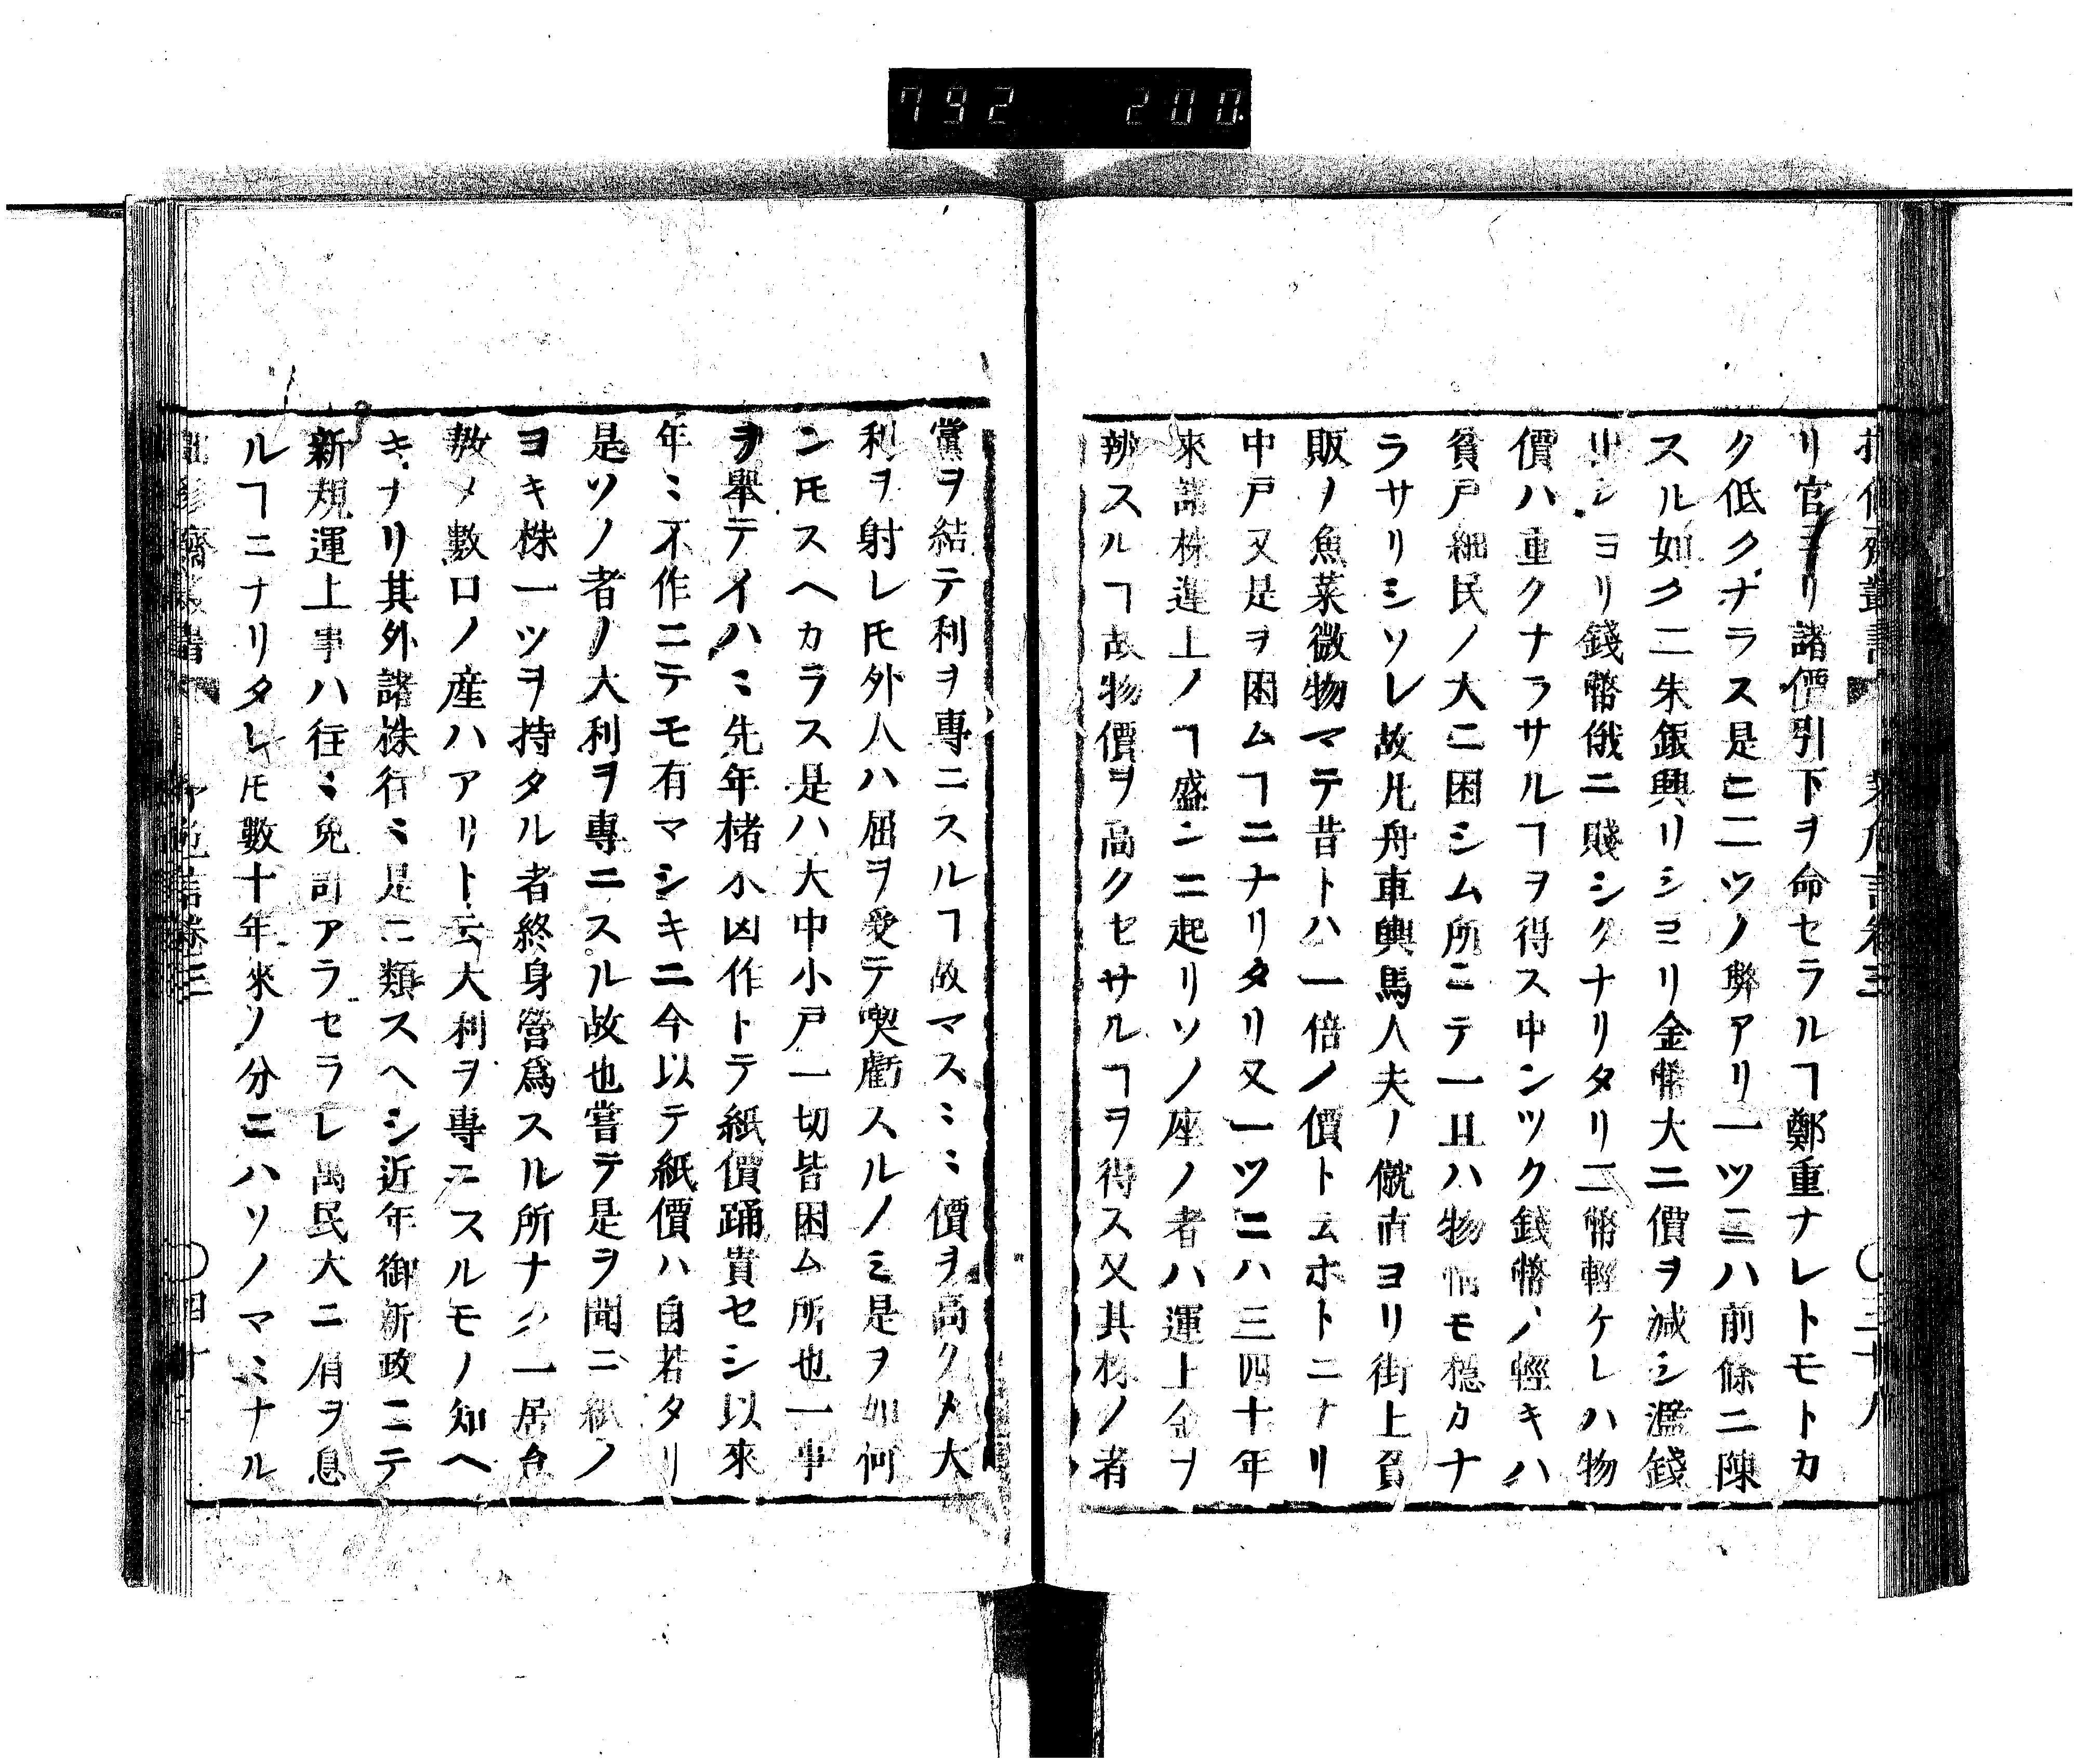 792 200
リ官ヨリ諸價引下ヲ命セラルヿ鄭重ナレトモトカ
ク低クナラス是ニ二ツノ弊アリ一ツニハ前條ニ陳
スル如ク二朱銀興リショリ金幣大ニ價ヲ減シ濫錢
出シヨリ錢幣俄ニ賤シクナリタリ二幣輕ケレハ物
價ハ重クナラサルヿヲ得ス中ンツク錢幣ノ輕キハ
貧戸細民ノ大ニ困シム所ニテ一旦ハ物情モ穩カナ
ラサリシソレ故凡舟車輿馬人夫ノ僦直ヨリ街上負
販ノ魚菜微物マテ昔トハ一倍ノ價ト云ホトニナリ
中戸又是ヲ困ムヿニナリタリ又一ツニハ三四十年
來諸株運上ノヿ盛ンニ起リソノ座ノ者ハ運上金ヲ
辨スルヿ故物價ヲ高クセサルヿヲ得ス又其株ノ者
黨ヲ結テ利ヲ專ニスルヿ故マスミミ價ヲ高クメ大
利ヲ射レ𪜈外人ハ屈ヲ受テ喫虧スルノミ是ヲ如何
ン𪜈スヘカラス是ハ大中小戸一切皆困ム所也一事
ヲ舉テイハミ先年楮不凶作トテ紙價踊貴セシ以來
年ミ不作ニテモ有マシキニ今以テ紙價ハ自若タリ
是ソノ者ノ大利ヲ專ニスル故也嘗テ是ヲ聞ニ紙ノ
ヨキ株一ツヲ持タル者終身營爲スル所ナク一居食
敖メ數口ノ産ハアリト云大利ヲ專ニスルモノ知ヘ
キナリ其外諸株行ミ是ニ類スヘシ近年御新政ニテ
新規運上事ハ往ミ免許アラセラレ萬民大ニ肩ヲ息
ルヿニナリタレ𪜈數十年來ノ分ニハソノマミナル